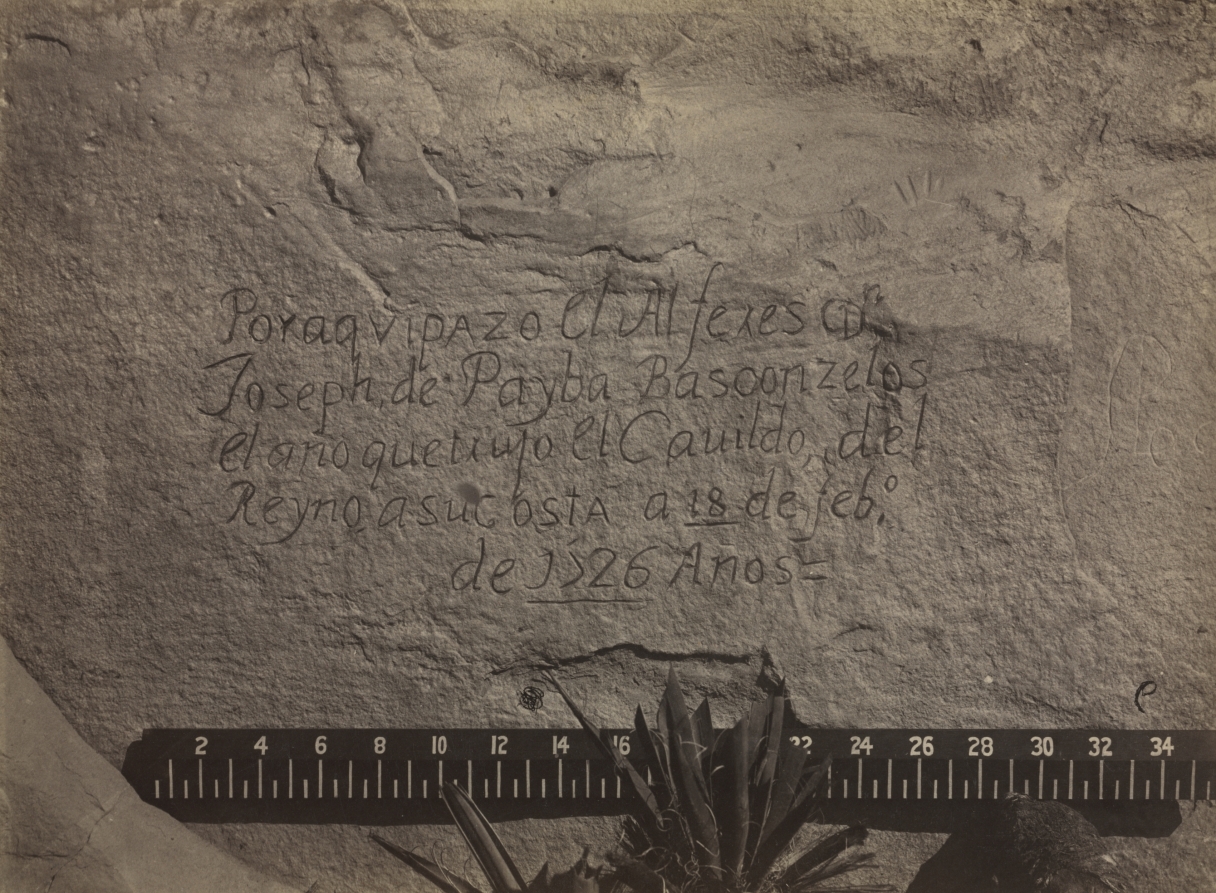 Poraqvipazo el Alferes Dn
Joseph, de Payba Basconzelos
el ano que trujo el Cauildo, del
Reyno a su costa a 18 de feb.o
de 1526 Anos=
2 4 6 8 10 12 14 16 22 24 26 28 30 32 34